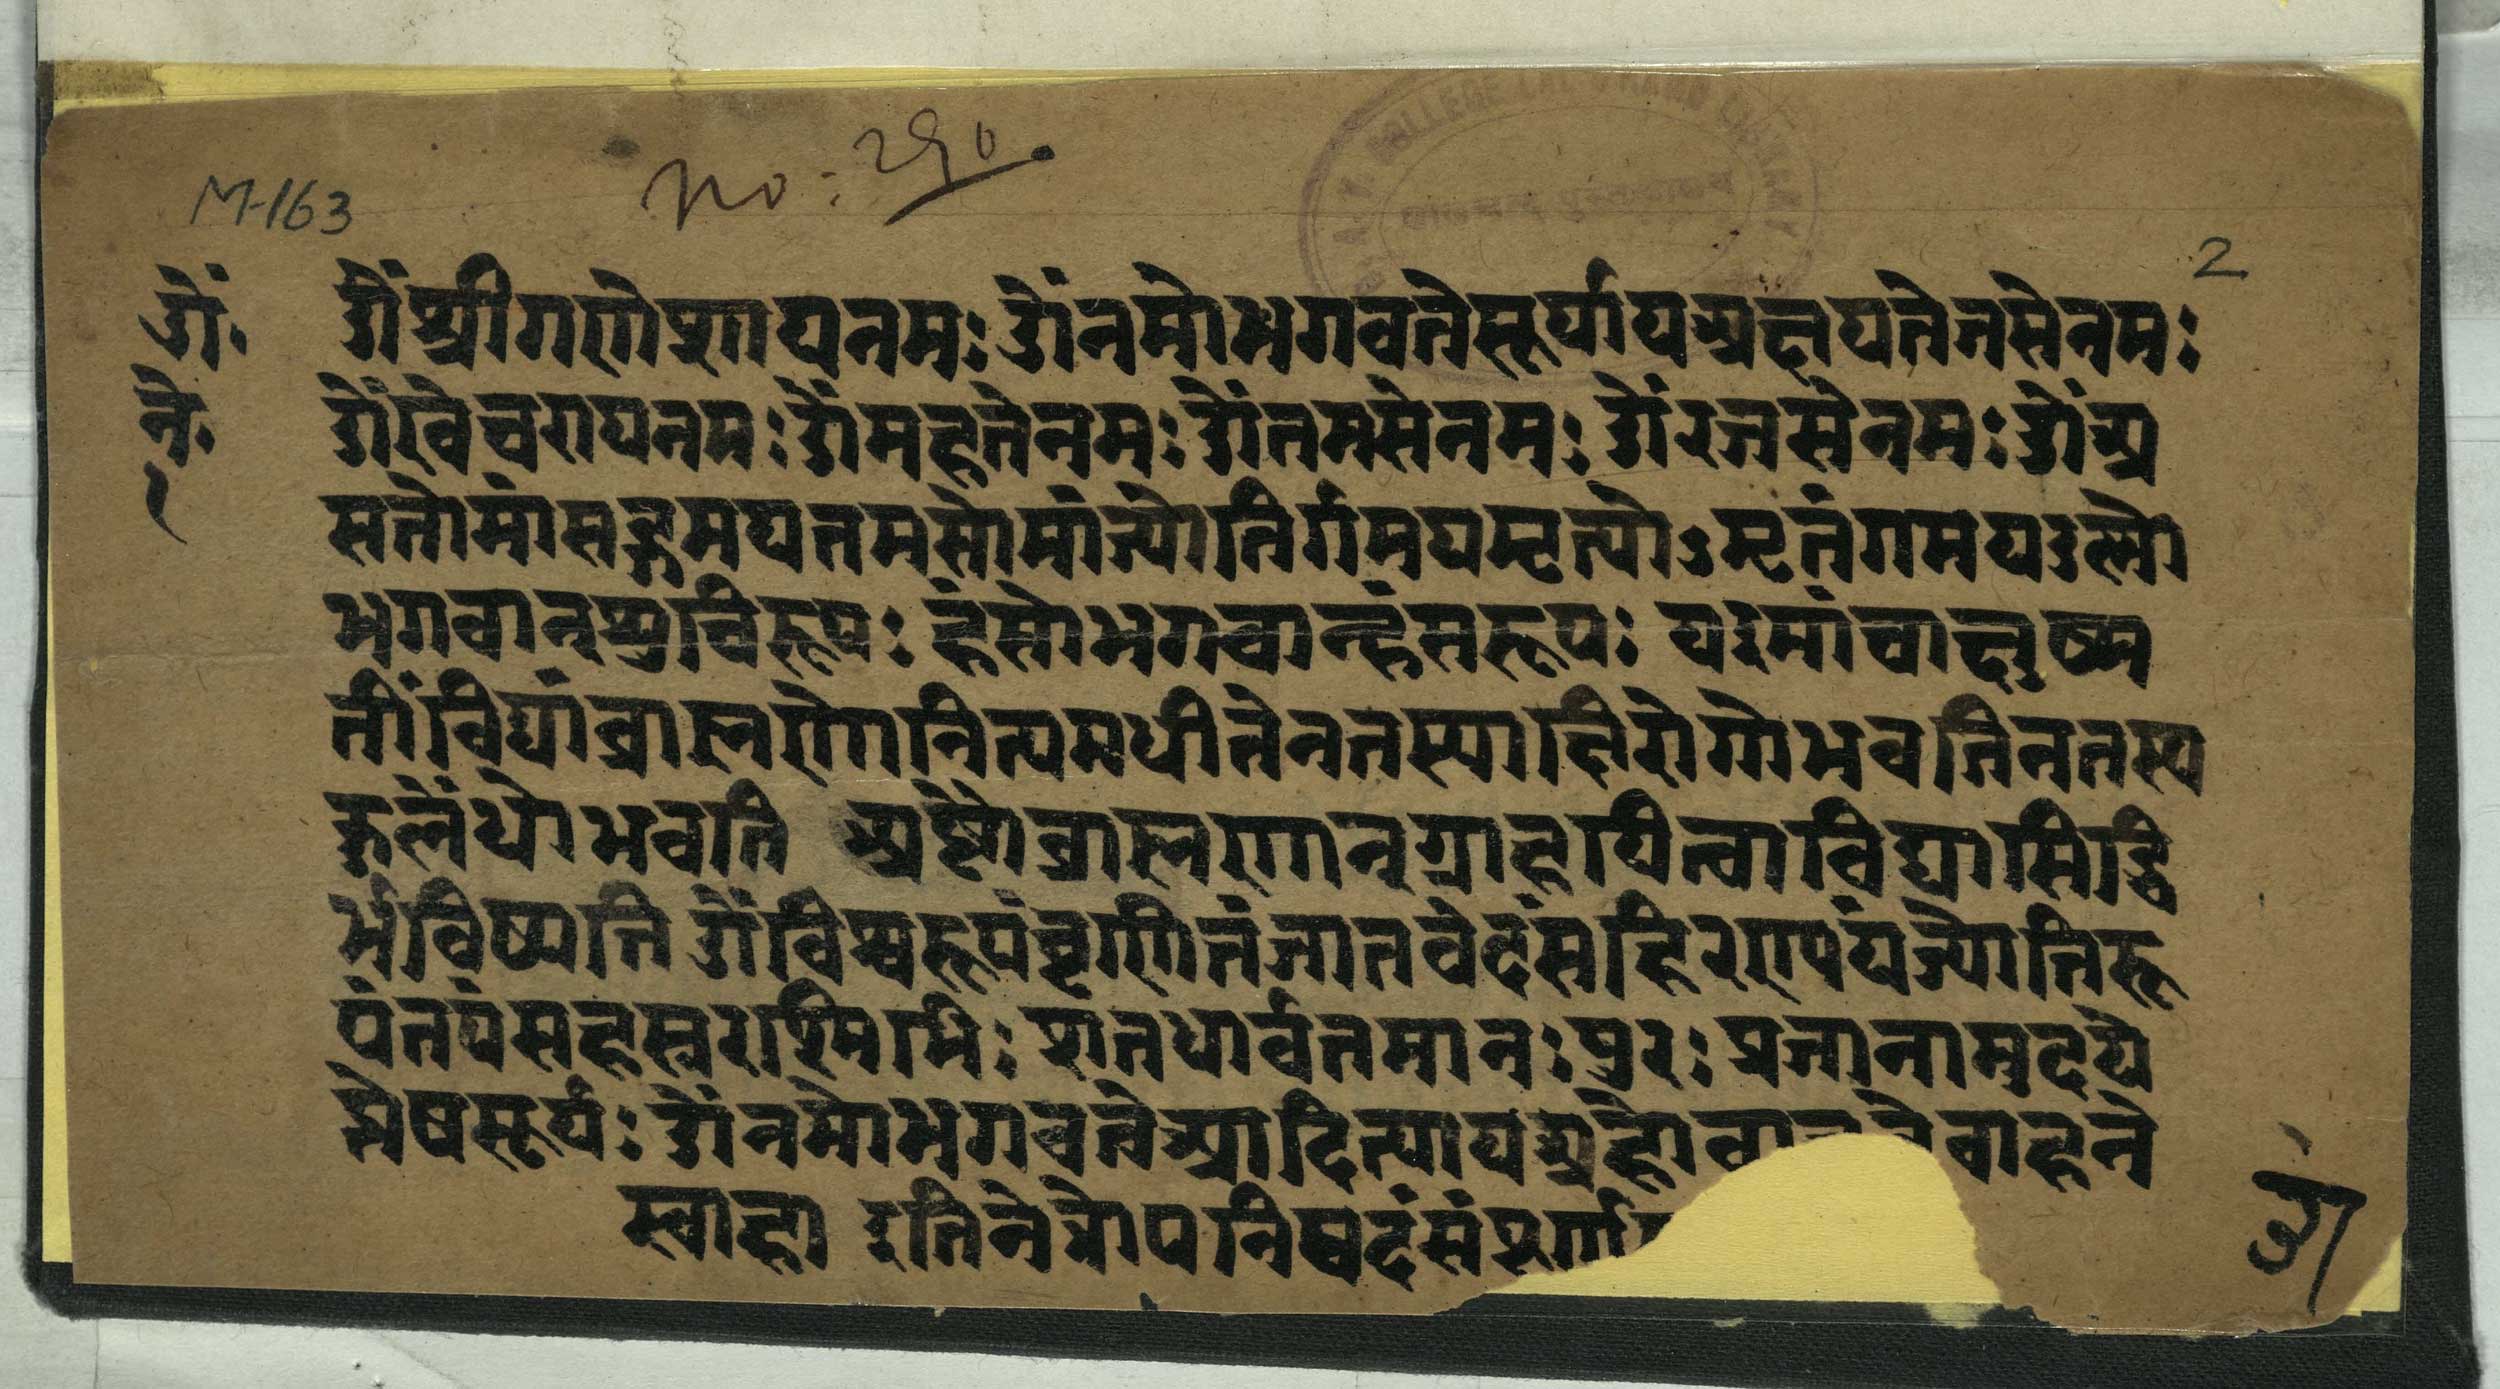 M-163
no: 290
D.A.V. COLLEGE LAL CHAND LIBRARY
लालचन्द पुस्तकालय
2
ॐ श्रीगणेशायनमः ॐनमोभगवतेसूर्यायअक्षयतेजसेनमः
ॐखेचरायनमः ॐमहतेनमः ॐतमसेनमः ॐरजसेनमः ॐअ
सतोमांसद्गमयतमसोमांज्योतिर्गमयमृत्योऽमृतंगमयउष्णो
भगवान्शुचिरूपः हंसोभगवान्हंसरूपः यइमांचाक्षुष्म
तींविद्यांब्राह्मणोनित्यमधीतेनतस्याक्षिरोगोभवतिनतस्य
कुलेंधोभवति अष्टौब्राह्मणान्ग्राहयित्वाविद्यासिद्धि
र्भविष्यति ॐविश्वरूपंघृणीतंजातवेदंसहिरण्यंयज्योतिरू
पंतपंसहस्त्ररश्मिभिः शतधावर्तमानः पुरः प्रजानामुदये
मेषसूर्यः ॐनमोभगवतेआदित्यायअहोवा वाहने
स्वाहा इतिनेत्रोपनिषदंसंपूर्ण
ॐ॰
ने॰
१